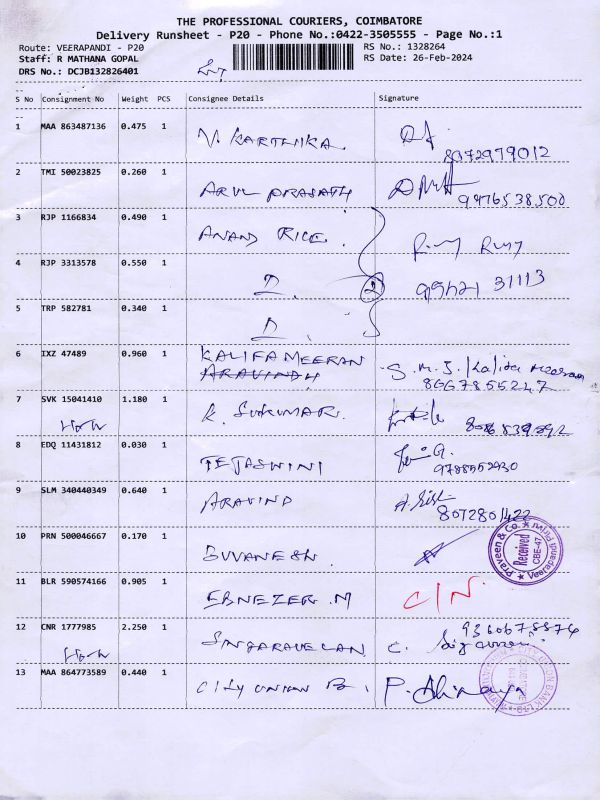 THE PROFESSIONAL COURIERS, COIMBATORE
Delivery Runsheet - P20 - Phone No.:0422-3505555 - Page No.:1
Route: VEERAPANDI - P20 RS No.: 1328264
Staff: R MATHANA GOPAL RS Date: 26-Feb-2024
DRS No.: DCJB132826401
S No Consignment No Weight PCS Consignee Details Signature
1 MAA 863487136 0.475 1 V. KARTHIKA.
8072979012
2 TMI 50023825 0.260 1 ARUL PRASATH
9976538500
3 RJP 1166834 0.490 1 ANAND RICE.
4 RJP 3313578 0.550 1 D. 2
5 TRP 582781 0.340 1 D.
6 IXZ 47489 0.960 1 KALIFA MEERAN S.M.S. Kalifa Meeran
ARAVINDH 8667855247
7 SVK 15041410 1.180 1 K. SUKUMAR.
8 EDQ 11431812 0.030 1 TEJASWINI
9788552930
9 SLM 340440349 0.640 1 ARAVIND
8072801422
10 PRN 500046667 0.170 1 BUVANESH.
Praveen & Co ★ Veerapandi Pirivu ★
Received
CBE-47
11 BLR 590574166 0.905 1 EBNEZER.M C/N.
12 CNR 1777985 2.250 1 SINGARAVELAN C.
13 MAA 864773589 0.440 1 CITY UNION B. P. Abinaya